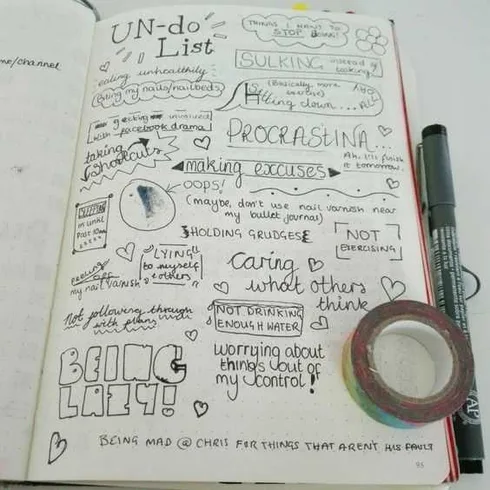 me/channel
UN-do
List
THINGS I WANT TO
STOP DOING!
SULKING instead of
talking.
eating unhealthily
Biting my nails/nailbeds
(Basically, more
exercise)
Sitting down... AHO
ALL
getting involved
with facebook drama
PROCRASTINA...
Ah. I'll finish
it tomorrow.
taking
shortcuts
making excuses
OOPS!
(maybe, don't use nail varnish near
my bullet journal)
SLEEPING
in until
Past 10am
HOLDING GRUDGES
NOT
EXERCISING
LYING
to myself
& others
PEELING
OFF
my nail varnish
Caring
what others
think
Not following through
with plans
NOT DRINKING
ENOUGH WATER
BEING
LAZY!
worrying about
things out of
my control!
BEING MAD @ CHRIS FOR THINGS THAT ARENT HIS FAULT
95